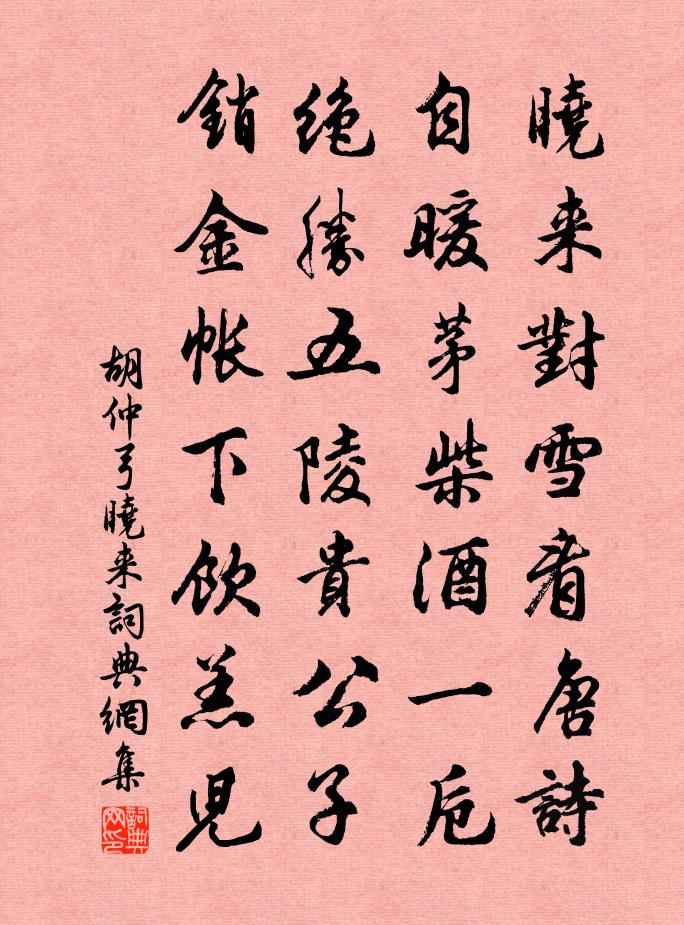 曉来對雪看唐詩
自暖茅柴酒一卮
絶勝五陵貴公子
銷金帳下飲羔兒
胡仲弓曉来詞典網集
詞典网印